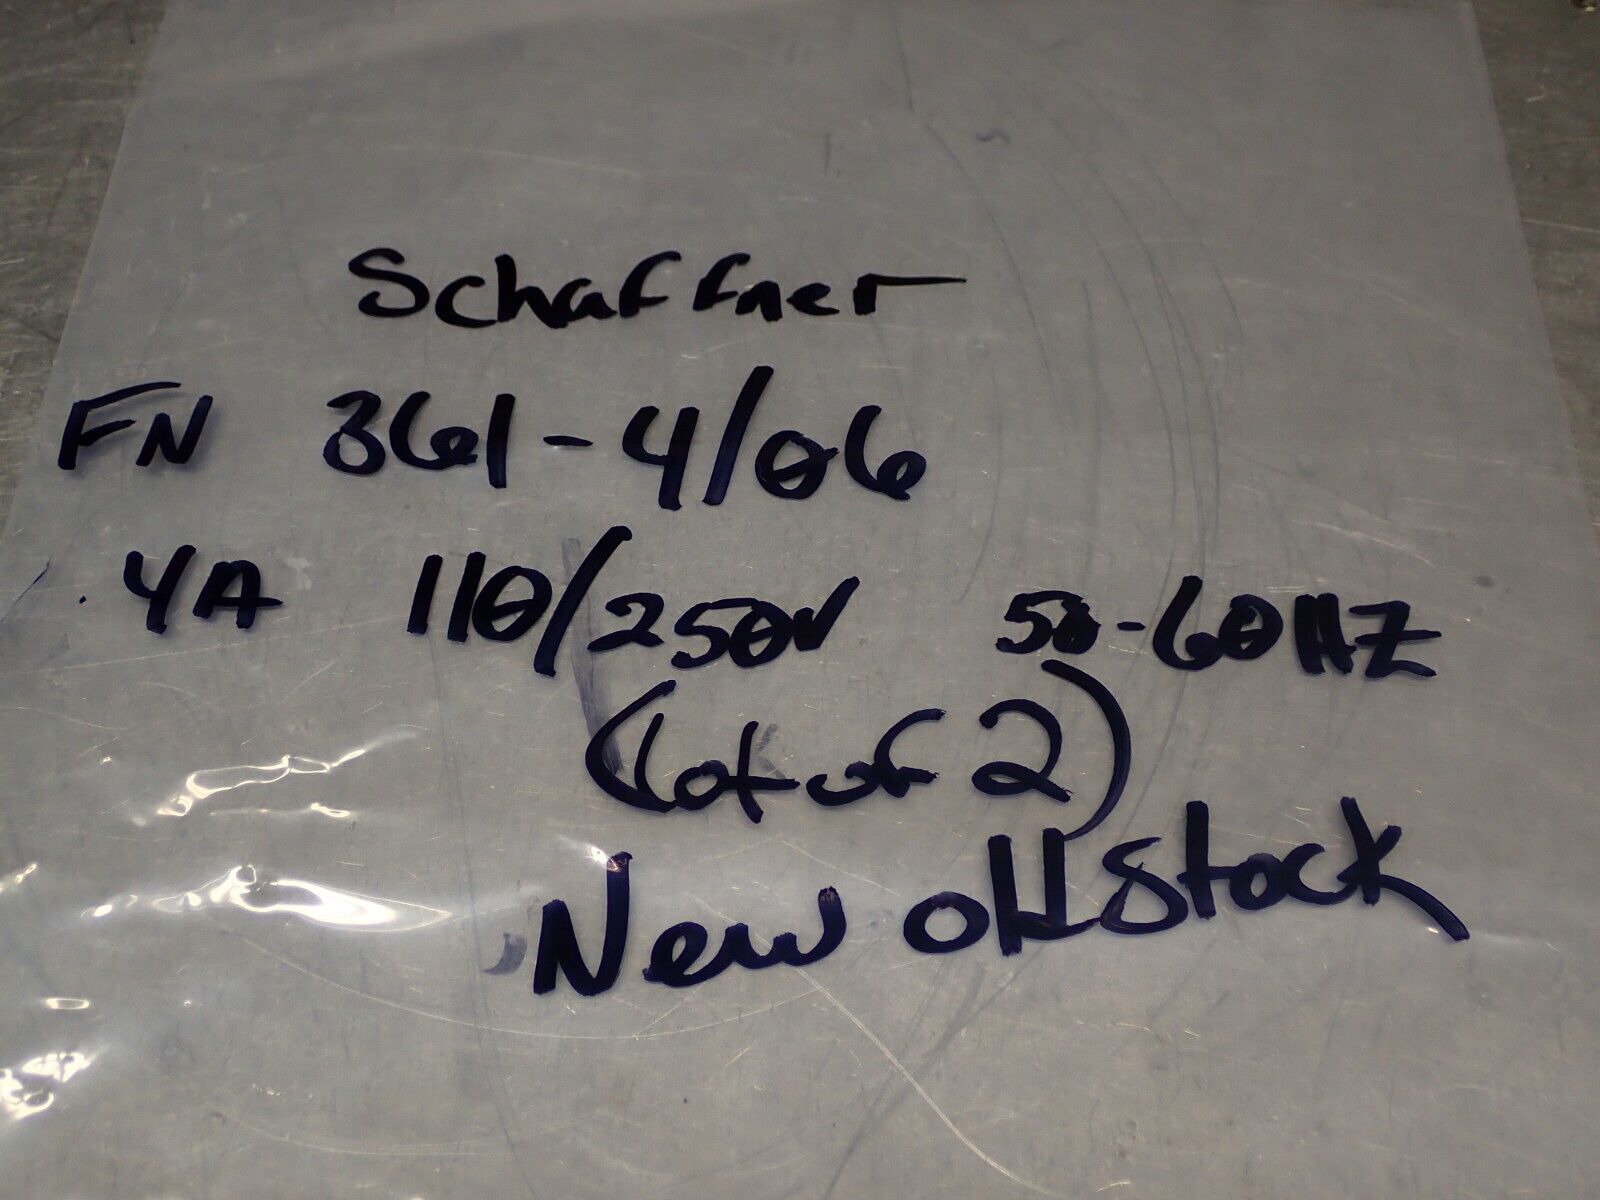 Schaffner
FN 361-4/06
4A 110/250V 50-60HZ
(Lot of 2)
New old Stock